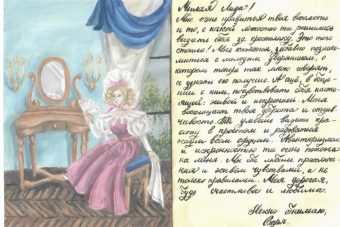 Милая Лиза!
Мне очень нравится твоя весёлость
и то, с какой ловкостью ты решилась
выдать себя за крестьянку. Это того
стоило! Мне кажется, забавно познако-
миться с молодым дворянином, о
котором теперь так много говорят,
и узнать его получше. А ещё, в обще-
нии с ним, почувствовать себя насто-
ящей: живой и искренней. Меня
восхищает твоя доброта и отзыв-
чивость. Ты умеешь видеть кра-
соту в простом и радоваться
жизни всем сердцем.
и искренностью ты очень похожа
на меня. Мы обе любим приключе-
ния и живём чувствами, а не
только правилами. Моя дорогая,
будь счастлива и любима.
Нежно обнимаю,